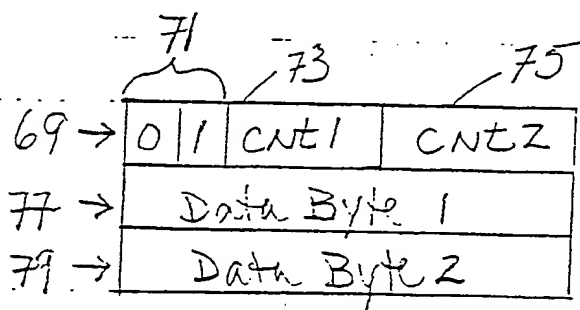 71 73 75
69 → 0 1 CNt1 CNt2
77 → Data Byte 1
79 → Data Byte 2